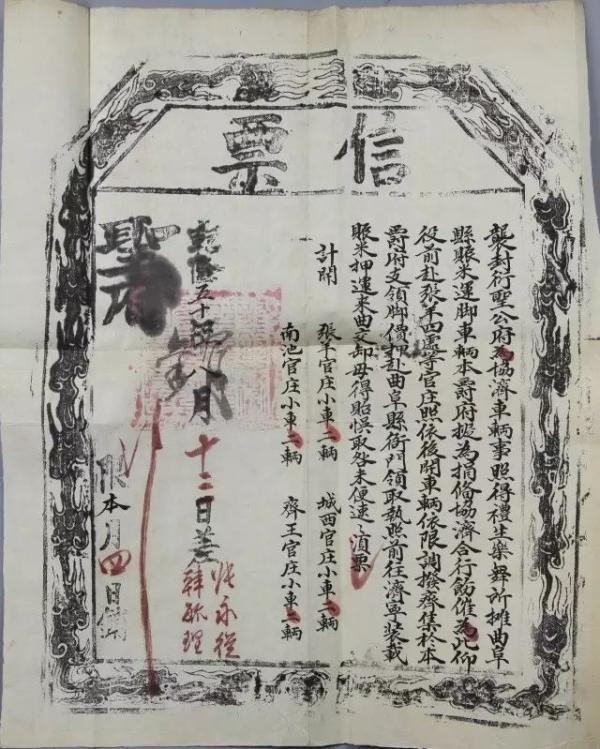 信票
襲封衍聖公府為協濟車輛事照得禮生樂舞所攤曲阜
縣賑米運脚車輛本爵府擬為捐偹協濟合行飭催為此仰
役前赴張羊四處等官庄照依後開車輛依限調撥齊集於本
爵府支領脚價押赴曲阜縣衙門領取執照前往濟寧装載
賑米押運来曲交卸毋得貽悞取咎未便速之須票
計開 張羊官庄小車二輛 城西官庄小車二輛
南池官庄小車二輛 齊王官庄小車二輛
乾隆五十 八月十二日差
張永從
韓 理
限本月四日銷